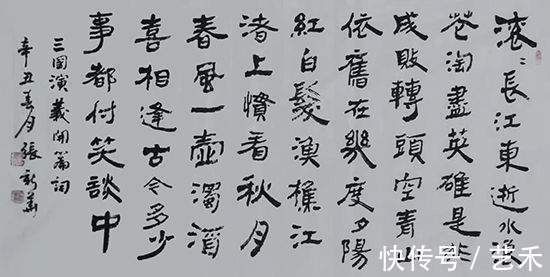 滚〻長江東逝水浪
花淘盡英雄是非
成敗轉頭空青山
依舊在幾度夕陽
紅白髮漁樵江
渚上慣看秋月
春風一壺濁酒
喜相逢古今多少
事都付笑談中
三國演義開篇詞
辛丑春月張新華
快传号 / 艺禾